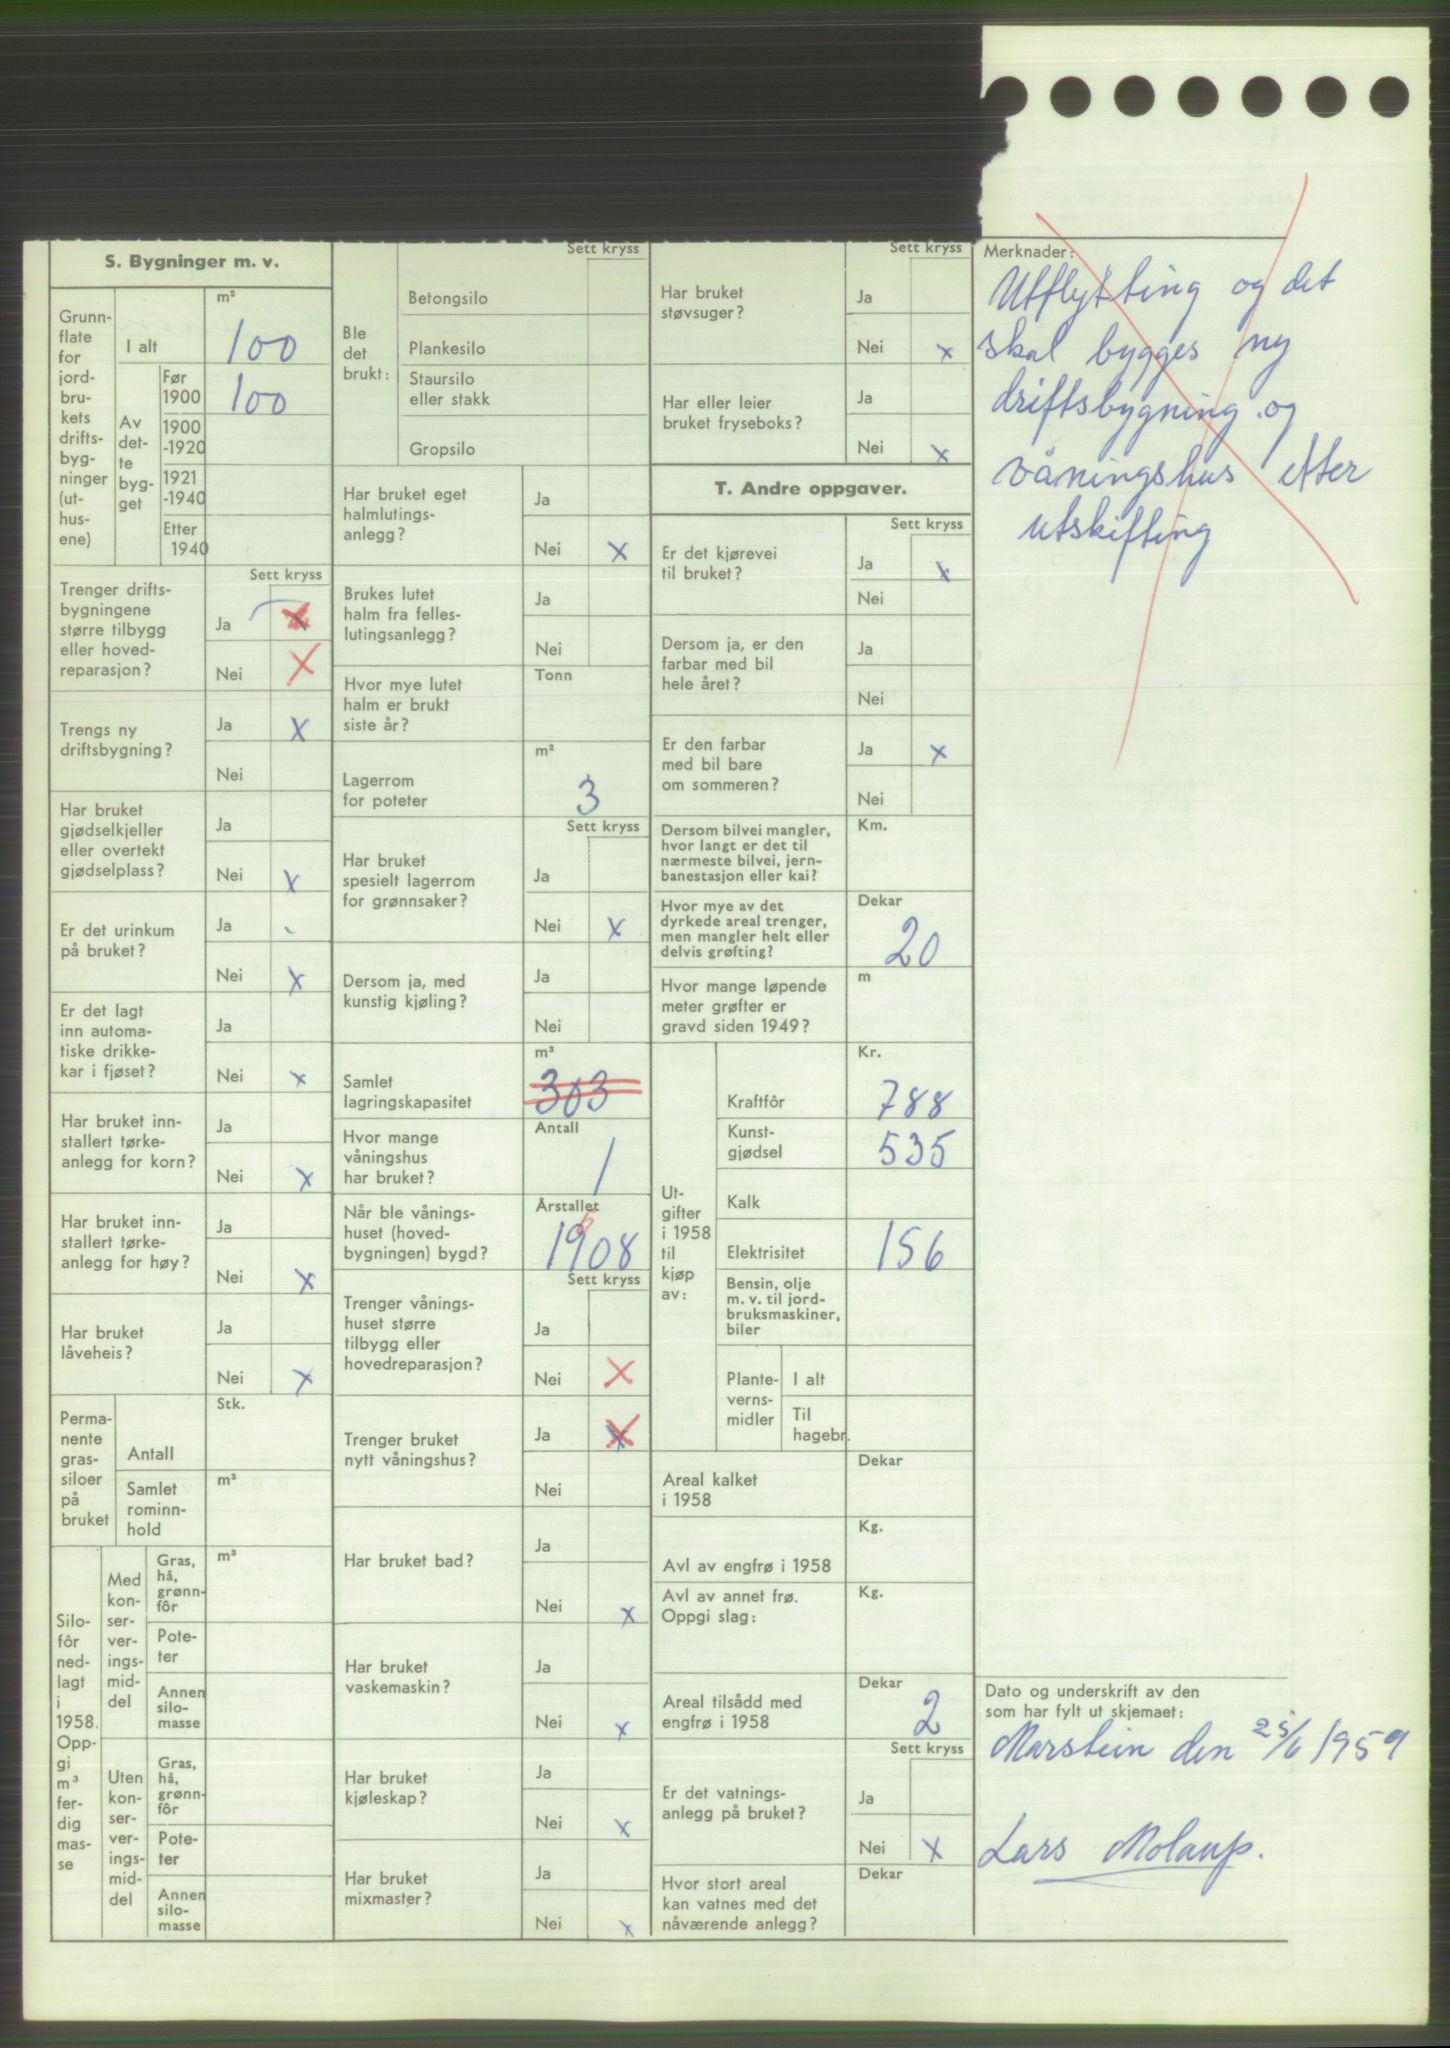 S. Bygninger m. v.
Grunn-
flate
for
jord-
bru-
kets
drifts-
byg-
ninger
(ut-
hus-
ene)
m²
I alt 100
Av
det-
te
byg-
get
Før
1900 100
1900
-1920
1921
-1940
Etter
1940
Sett kryss
Trenger drifts-
bygningene
større tilbygg
eller hoved-
reparasjon?
Ja x
Nei x
Trengs ny
driftsbygning?
Ja x
Nei
Har bruket
gjødselkjeller
eller overtekt
gjødselplass?
Ja
Nei x
Er det urinkum
på bruket?
Ja
Nei x
Er det lagt
inn automa-
tiske drikke-
kar i fjøset?
Ja
Nei x
Har bruket inn-
stallert tørke-
anlegg for korn?
Ja
Nei x
Har bruket inn-
stallert tørke-
anlegg for høy?
Ja
Nei x
Har bruket
låveheis?
Ja
Nei x
Perma-
nente
gras-
siloer
på
bruket
Stk.
Antall
Samlet
rominn-
hold
m³
Silo-
fôr
ned-
lagt
i
1958.
Opp-
gi
m³
fer-
dig
mas-
se
Med
kon-
ser-
ver-
ings-
mid-
del
Gras,
hå,
grønn-
fôr
m³
Pote-
ter
Annen
silo-
masse
Uten
kon-
ser-
ver-
ings-
mid-
del
Gras,
hå,
grønn-
fôr
Pote-
ter
Annen
silo-
masse
Sett kryss
Ble
det
brukt:
Betongsilo
Plankesilo
Staursilo
eller stakk
Gropsilo
Har bruket eget
halmlutings-
anlegg?
Ja
Nei x
Brukes lutet
halm fra felles-
lutingsanlegg?
Ja
Nei
Hvor mye lutet
halm er brukt
siste år?
Tonn
Lagerrom
for poteter
m³
3
Sett kryss
Har bruket
spesielt lagerrom
for grønnsaker?
Ja
Nei x
Dersom ja, med
kunstig kjøling?
Ja
Nei
Samlet
lagringskapasitet
m³
303
Hvor mange
våningshus
har bruket?
Antall
1
Når ble vånings-
huset (hoved-
bygningen) bygd?
Årstallet
1908
Sett kryss
Trenger vånings-
huset større
tilbygg eller
hovedreparasjon?
Ja
Nei x
Trenger bruket
nytt våningshus?
Ja x
Nei
Har bruket bad?
Ja
Nei x
Har bruket
vaskemaskin?
Ja
Nei x
Har bruket
kjøleskap?
Ja
Nei x
Har bruket
mixmaster?
Ja
Nei x
Sett kryss
Har bruket
støvsuger?
Ja
Nei x
Har eller leier
bruket fryseboks?
Ja
Nei x
T. Andre oppgaver.
Sett kryss
Er det kjørevei
til bruket?
Ja x
Nei
Dersom ja, er den
farbar med bil
hele året?
Ja
Nei
Er den farbar
med bil bare
om sommeren?
Ja x
Nei
Dersom bilvei mangler,
hvor langt er det til
nærmeste bilvei, jern-
banestasjon eller kai?
Km.
Hvor mye av det
dyrkede areal trenger,
men mangler helt eller
delvis grøfting?
Dekar
20
Hvor mange løpende
meter grøfter er
gravd siden 1949?
m
Ut-
gifter
i 1958
til
kjøp
av:
Kr.
Kraftfôr 788
Kunst-
gjødsel 535
Kalk
Elektrisitet 156
Bensin, olje
m. v. til jord-
bruksmaskiner,
biler
Plante-
verns-
midler
I alt
Til
hagebr.
Areal kalket
i 1958
Dekar
Avl av engfrø i 1958
Kg.
Avl av annet frø.
Oppgi slag:
Kg.
Areal tilsådd med
engfrø i 1958
Dekar
2
Sett kryss
Er det vatnings-
anlegg på bruket?
Ja
Nei x
Hvor stort areal
kan vatnes med det
nåværende anlegg?
Dekar
Merknader:
Utflytting og det
skal bygges ny
driftsbygning og
våningshus etter
utskifting
Dato og underskrift av den
som har fylt ut skjemaet:
Marstein den 25/6 1959
Lars